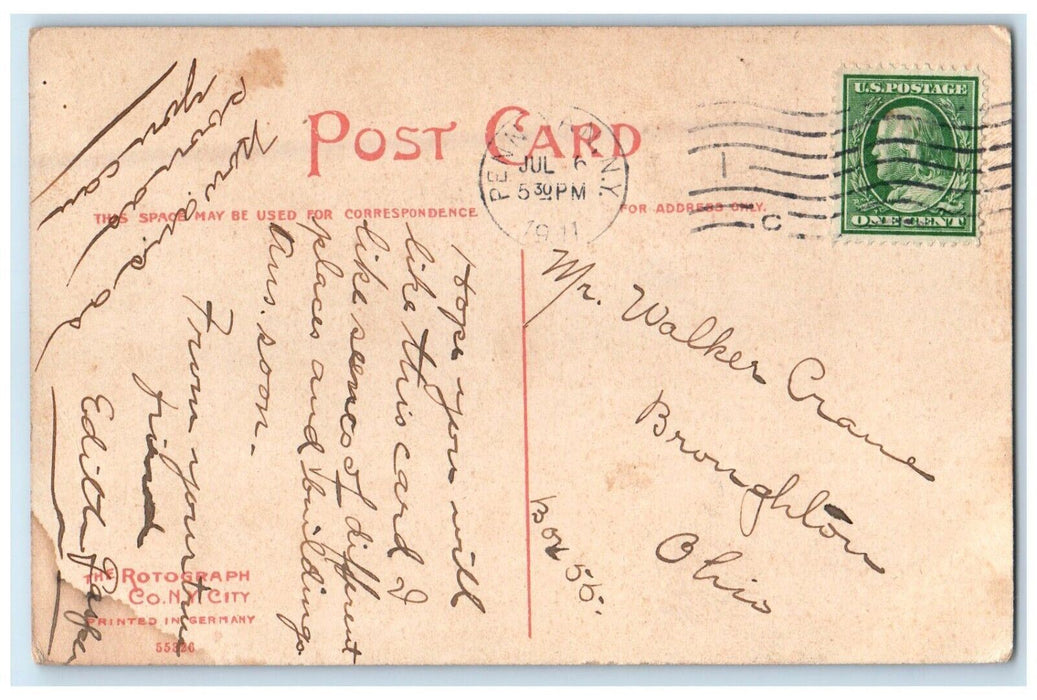 POST CARD
THIS SPACE MAY BE USED FOR CORRESPONDENCE
FOR ADDRESS ONLY.
JUL 6
5 30 PM
N.Y.
1
C
U.S. POSTAGE
ONE CENT
Mr. Walker Crane
Broughton
Ohio
Box 55.
Hope you will
like this card I
like senes of different
places and buildings
Ans. soon.
From your true
friend
Edith
as
you can
THE ROTOGRAPH
CO. N.Y. CITY
PRINTED IN GERMANY